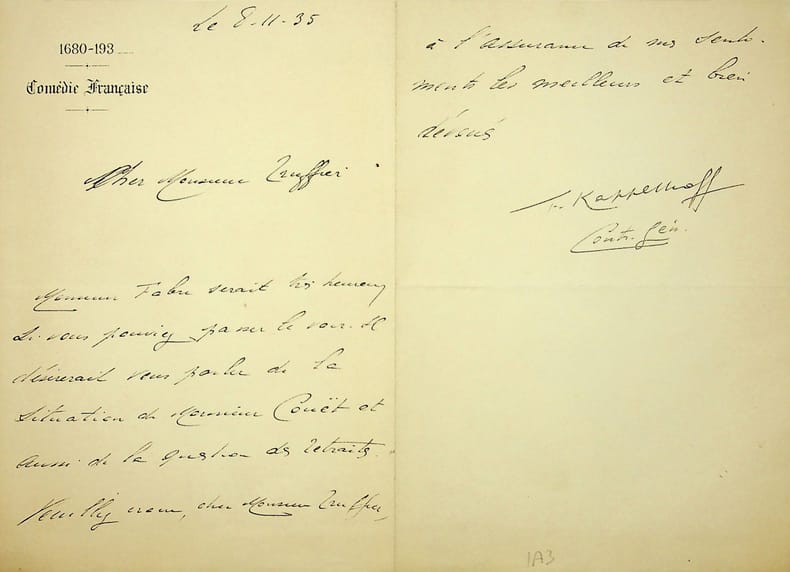 Le 8-11-35
1680-193
Comédie Française
Cher Monsieur Truffier
Monsieur Fabre serait très heureux
si vous pouviez passer le voir. Il
désirerait vous parler de la
situation de Monsieur Couët et
aussi de la question des retraités.
Veuillez croire, cher Monsieur Truffier,
à l'assurance de mes senti-
ments les meilleurs et bien
dévoués
Kappelhoff
Contr. Gén.
1A3